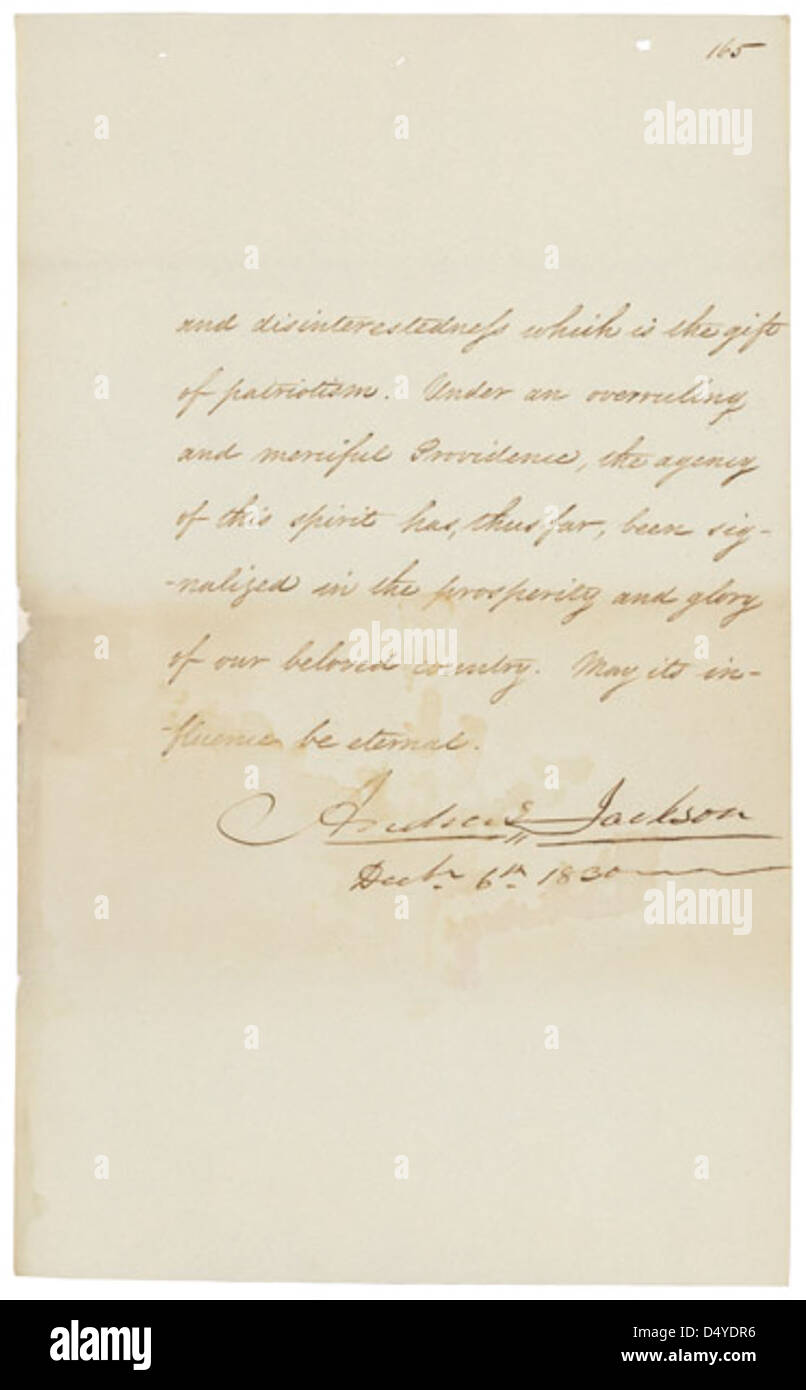 165
and disinterestedness which is the gift
of patriotism. Under an overruling
and merciful Providence, the agency
of this spirit has, thus far, been sig-
-nalized in the prosperity and glory
of our beloved country. May its in-
-fluence be eternal.
Andrew Jackson
Decbr. 6th. 1830
alamy
alamy
alamy
a
alamy
Image ID: D4YDR6
www.alamy.com